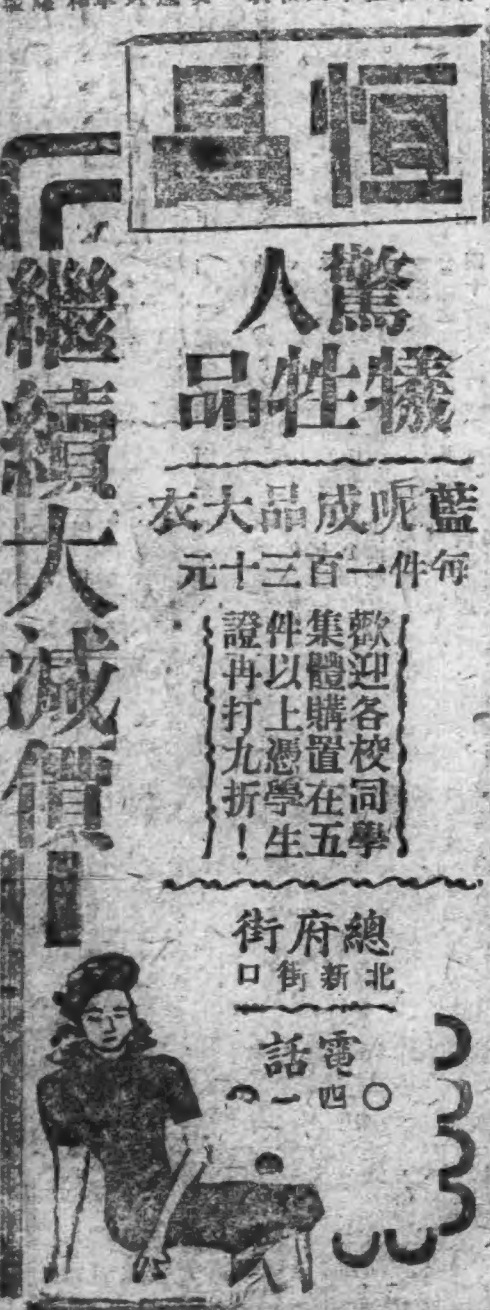 恒昌
驚人
犧牲品
藍呢成品大衣
每件一百三十元
歡迎各校同學
集體購置在五
件以上憑學生
證再打九折！
總府街
北新街口
電話
〇四一
繼續大減價